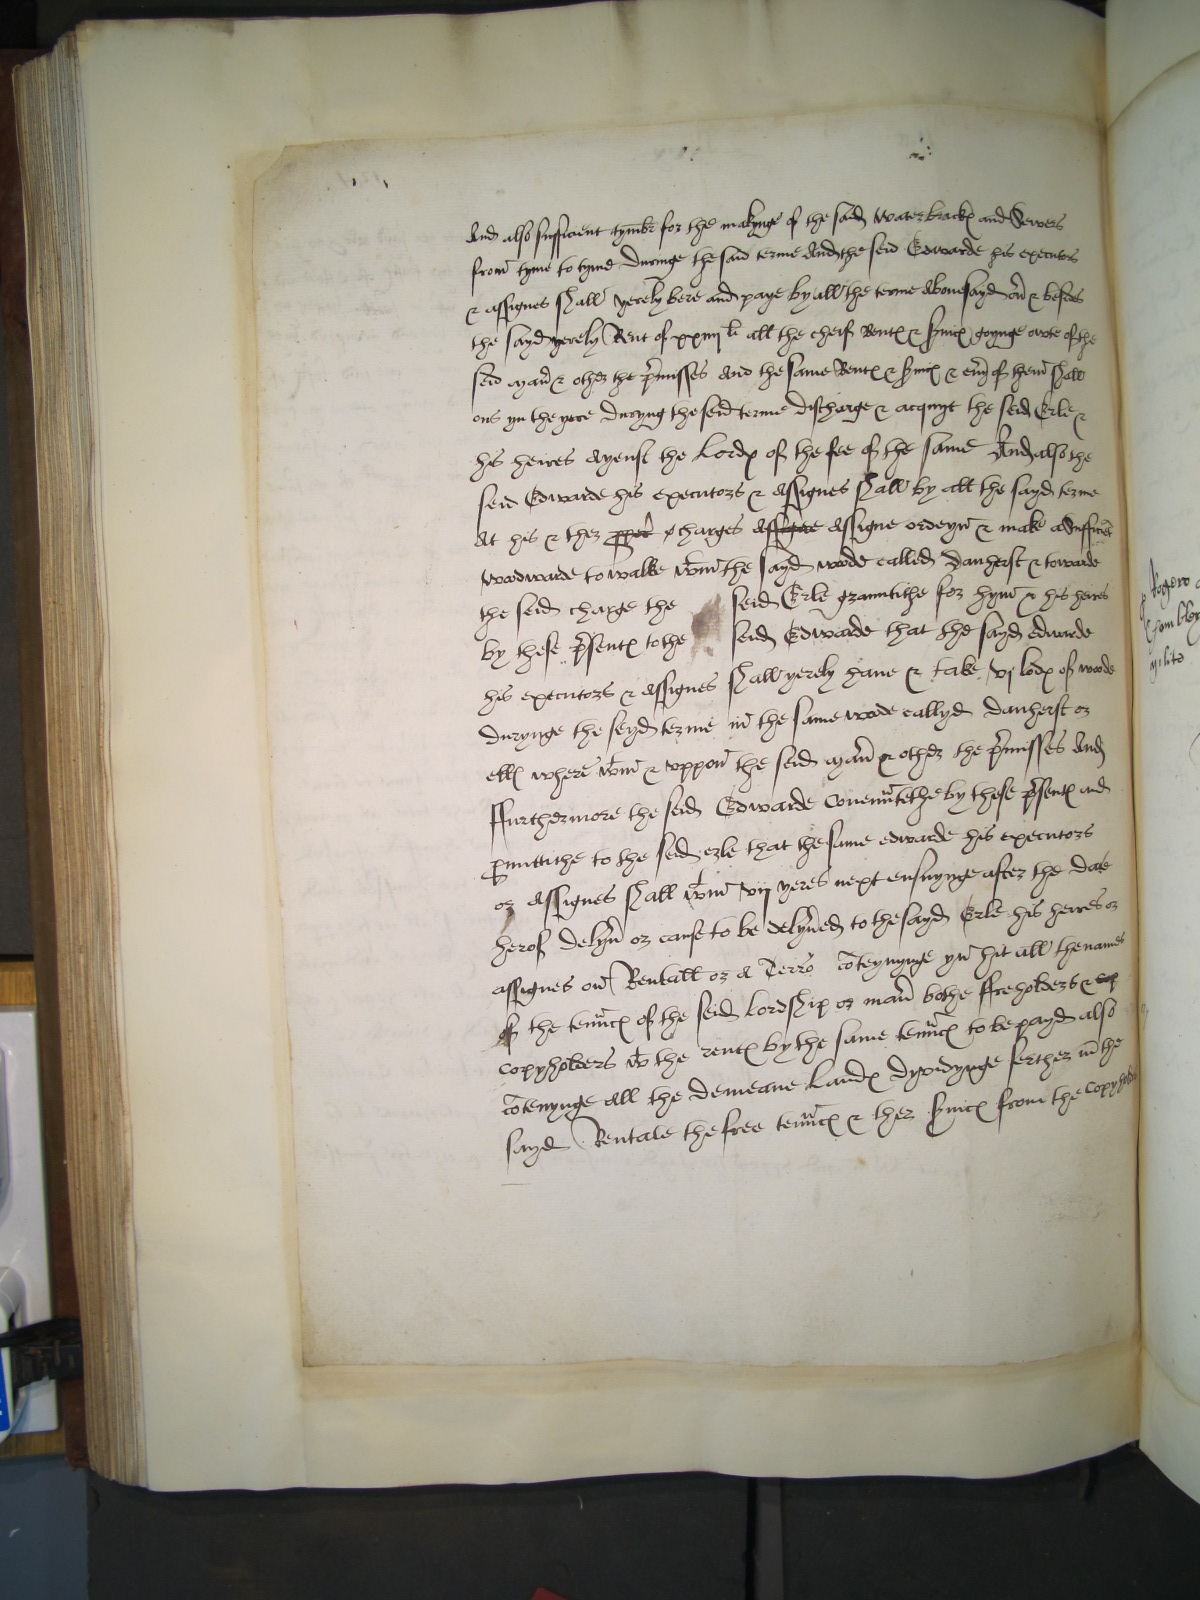 And also sufficient tymbr for the makynge of the said Waterbrackꝭ and Sewers
from tyme to tyme Duringe the said terme And the seid Edwarde his executrs
& assignes shall yerely bere and paye by all the terme Abouesayd ou & besides
the sayd yerely Rent of xxiiij li all the cheif Rentꝭ & Suicꝭ goynge owte of the
seid man & other the pmisses And the same Rentꝭ & Suicꝭ & euy of them shall
ons yn the yere Duryng the seid terme discharge & acquyt the seid Erle &
his heires Ayenst the Lordꝭ of the fee of the same And also the
seid Edwarde his executors & Assignes shall by all the sayd terme
At his & ther charges Assigne ordeyn & make a Sufficiet
Woodwarde to walke wtin the sayd wode called Danherst & towarde
the seid charge the seid Erle grauntithe for hym & his heires
by these psentꝭ to the seid Edwarde that the sayd edwarde
his executors & Assignes shall yerely haue & take vj lodꝭ of woode
Durynge the seyd terme in the same wode callyd Danherst or
ellꝭ where wtin & vppon the seid man & other the pmisses And
ffurthermore the seid Edwarde couenntethe by these psentꝭ and
pmittithe to the seid erle that the same edwarde his executors
or Assignes shall wtin vij yeres next ensuynge after the date
herof delyu or cause to be delyued to the sayd Erle his heires or
assignes on Rentall or A Terro coteynynge yn hit all the names
of the tenntꝭ of the seid Lordship or man bothe ffreholders & cop
copyholders wt the rentꝭ by the same tenntꝭ to be payd also
cotenynge All the demeane Landꝭ Dyvidynge ferther in the
sayd Rentale the free tenntꝭ & ther Suicꝭ from the Copyholde
Rogero
Chomley
milite